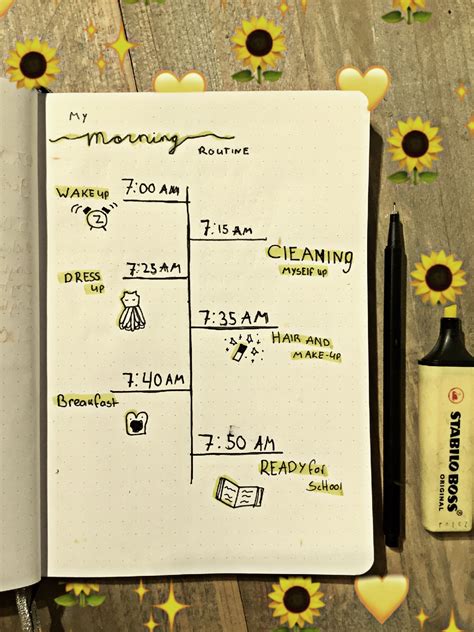 My
Morning
ROUTINE
WAKE UP
7:00 AM
7:15 AM
CLEANING
MYSELF UP
7:25 AM
DRESS
UP
7:35 AM
HAIR AND
MAKE-UP
7:40 AM
Breakfast
7:50 AM
READY for
SCHOOL
STABILO BOSS
ORIGINAL